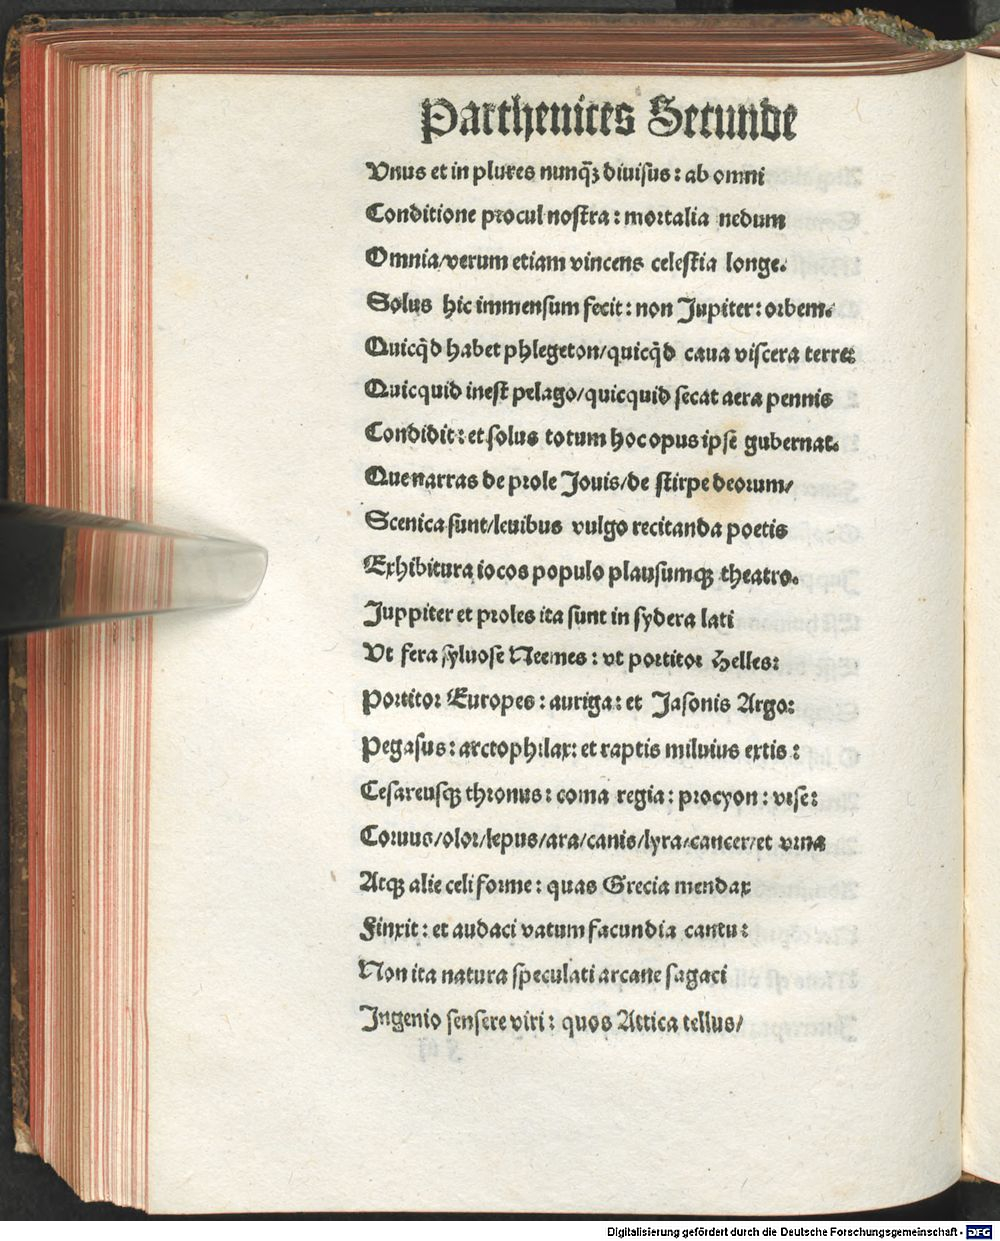 Parthenices Secunde
Vnus et in plures nunq̃ꝫ diuisus: ab omni
Conditione procul nostra: mortalia nedum
Omnia/verum etiam vincens celestia longe.
Solus hic immensum fecit: non Jupiter: orbem.
Quicq̃d habet phlegeton/quicq̃d caua viscera terre:
Quicquid inest pelago/quicquid secat aera pennis
Condidit: et solus totum hoc opus ipse gubernat.
Que narras de prole Jouis/de stirpe deorum/
Scenica sunt/leuibus vulgo recitanda poetis
Exhibitura iocos populo plausumqꝫ theatro.
Juppiter et proles ita sunt in sydera lati
Vt fera syluose Neemes: vt portitor Helles:
Portitor Europes: auriga: et Jasonis Argo:
Pegasus: arctophilax: et raptis miluius extis:
Cesareusqꝫ thronus: coma regia: procyon: vrse:
Coruus/olor/lepus/ara/canis/lyra/cancer/et vrna
Atqꝫ alie celi forme: quas Grecia mendax
Finxit: et audaci vatum facundia cantu:
Non ita natura speculati arcane sagaci
Ingenio sensere viri: quos Attica tellus/
Digitalisierung gefördert durch die Deutsche Forschungsgemeinschaft - DFG